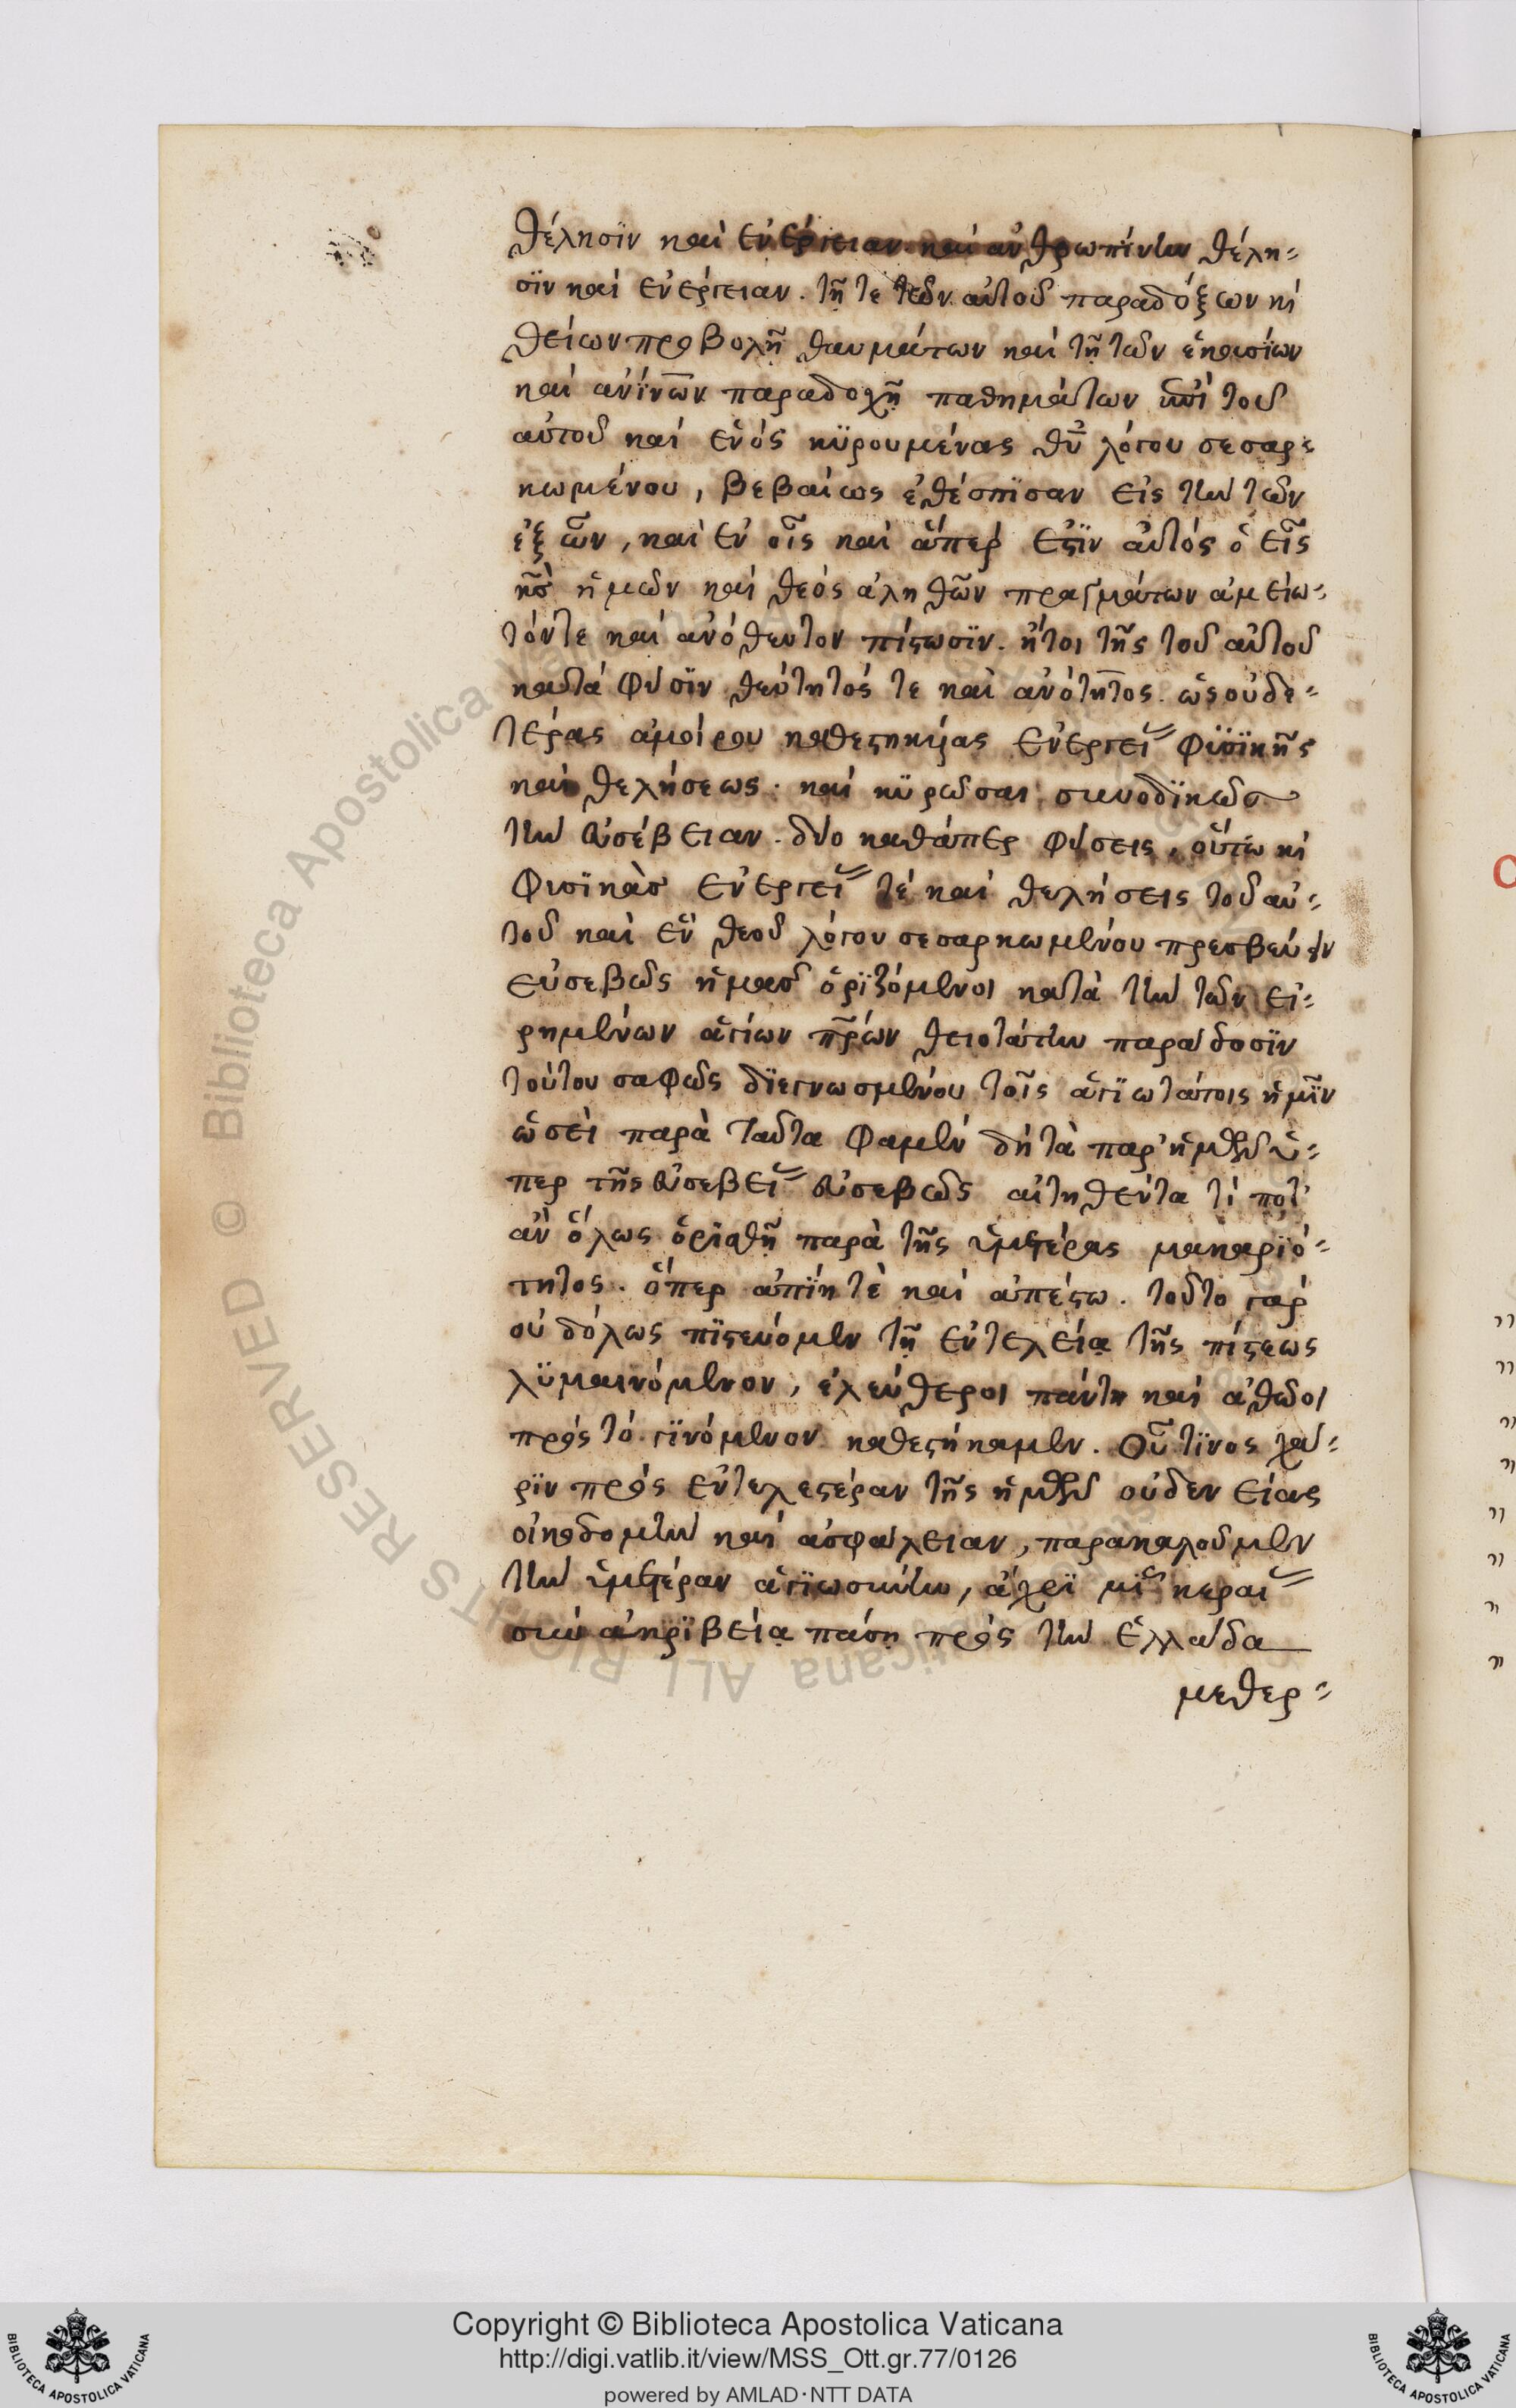 θέλησϊν καὶ ἐνέργειαν καὶ ἀνθρωπίνην θέλη-
σϊν καὶ ἐνέργειαν. τῆ τε τῶν αὐτοῦ παραδόξων κὶ
θείων προβολῆ θαυμάτων καὶ τῆ τῶν ἑκουσΐων
καὶ ἀνΐνων παραδοχῆ παθημάτων ἐπὶ τοῦ
αὐτοῦ καὶ ἑνὸς κϋρουμένας θῦ λόγου σεσαρ-
κωμένου, βεβαίως ἐθέσπϊσαν εἰς τὴν τῶν
ἐξ ὧν, καὶ ἐν οἷς καὶ ἅπερ ἐστϊν αὐτὸς ὁ εἷς
κς ἡμῶν καὶ θεὸς ἀληθῶν πραγμάτων ἀμείω-
τόν τε καὶ ἀνόθευτον πίστωσϊν. ἤτοι τῆς τοῦ αὐτοῦ
κατὰ φύσϊν θεότητός τε καὶ ἀνότητος. ὡς οὐδε-
τέρας ἀμοίρου καθεστηκυίας ἐνεργεί φϋσϊκῆς
καὶ θελήσεως. καὶ κϋρῶσαι συνοδϊκῶς
τὴν εὐσέβειαν. δύο καθάπερ φύσεις, οὕτω κὶ
φυσϊκὰς ἐνεργεί τὲ καὶ θελήσεις τοῦ αὐ-
τοῦ καὶ ἑν θεοῦ λόγου σεσαρκωμένου πρεσβεύειν
εὐσεβῶς ἡμᾶς ὁρϊζόμενοι κατὰ τὴν τῶν εἰ-
ρημένων ἁγίων πρων θειοτάτην παράδοσϊν
τούτου σαφῶς δϊεγνωσμένου τοῖς ἁγϊωτάτοις ἡμϊν
ὡσεὶ παρὰ ταῦτα φαμὲν δὴ τὰ παρ' ἡμῶν ὑ-
περ τῆς εὐσεβεί εὐσεβῶς αἰτηθέντα τί ποτ'
ἂν ὅλως ὁρϊσθῆ παρὰ τῆς ὑμετέρας μακαρϊό-
τητος. ὅπερ ἀπϊη τὲ καὶ ἀπέστω. τοῦτο γὰρ
οὐδόλως πϊστεύομεν τῆ ἐντελεία τῆς πίστεως
λϋμαινόμενον, ἐλεύθεροι πάντη καὶ ἀθῶοι
πρὸς τὸ γϊνόμενον καθεστήκαμεν. Οὗ τϊνος χά-
ρϊν πρὸς ἐντελεστέραν τῆς ἡμῶν οὐδενείας
οἰκοδομὴν καὶ ἀσφάλειαν, παρακαλοῦμεν
τὴν ὑμετέραν ἁγϊωσύνην, ἄχρϊ μϊ κεραί
σὺν ἀκρϊβεία πάση πρὸς τὴν Ἑλλάδα
μεθερ-
Copyright © Biblioteca Apostolica Vaticana
http://digi.vatlib.it/view/MSS_Ott.gr.77/0126
powered by AMLAD·NTT DATA
BIBLIOTECA APOSTOLICA VATICANA
BIBLIOTECA APOSTOLICA VATICANA